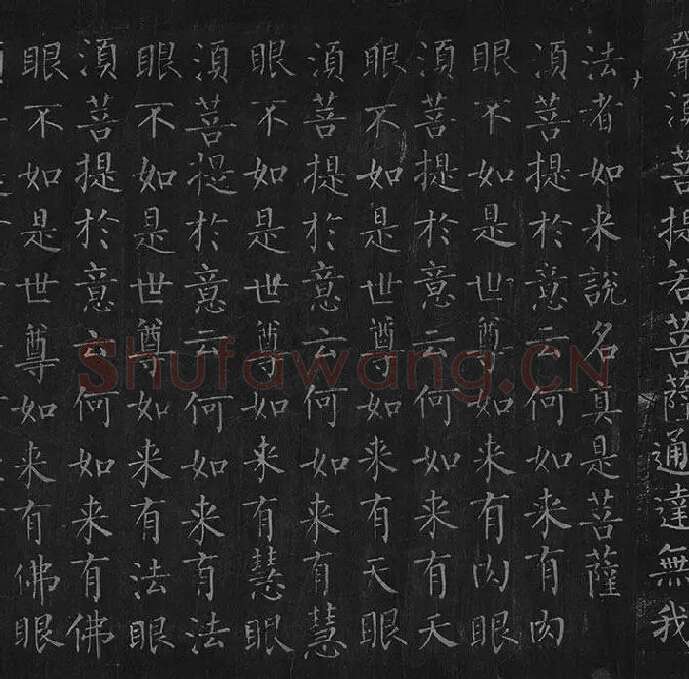 嚴須菩提若菩薩通達無我
法者如来說名真是菩薩
須菩提於意云何如来有肉
眼不如是世尊如来有肉眼
須菩提於意云何如来有天
眼不如是世尊如来有天眼
須菩提於意云何如来有慧
眼不如是世尊如来有慧眼
須菩提於意云何如来有法
眼不如是世尊如来有法眼
須菩提於意云何如来有佛
眼不如是世尊如来有佛眼
Shufawang.CN